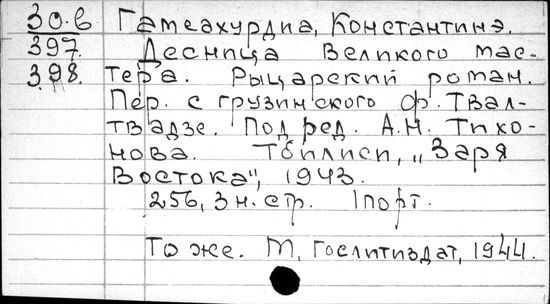 30.в Гамсахурдиа, Константинэ.
397. Десница Великого мас-
398. тера. Рыцарский роман.
Пер. с грузинского Ф. Твал-
твадзе. Под ред. А.Н. Тихо-
нова. Тбилиси, „Заря
Востока", 1943.
256, 3 н. стр. 1 порт.
То же. М, Гослитиздат, 1944.